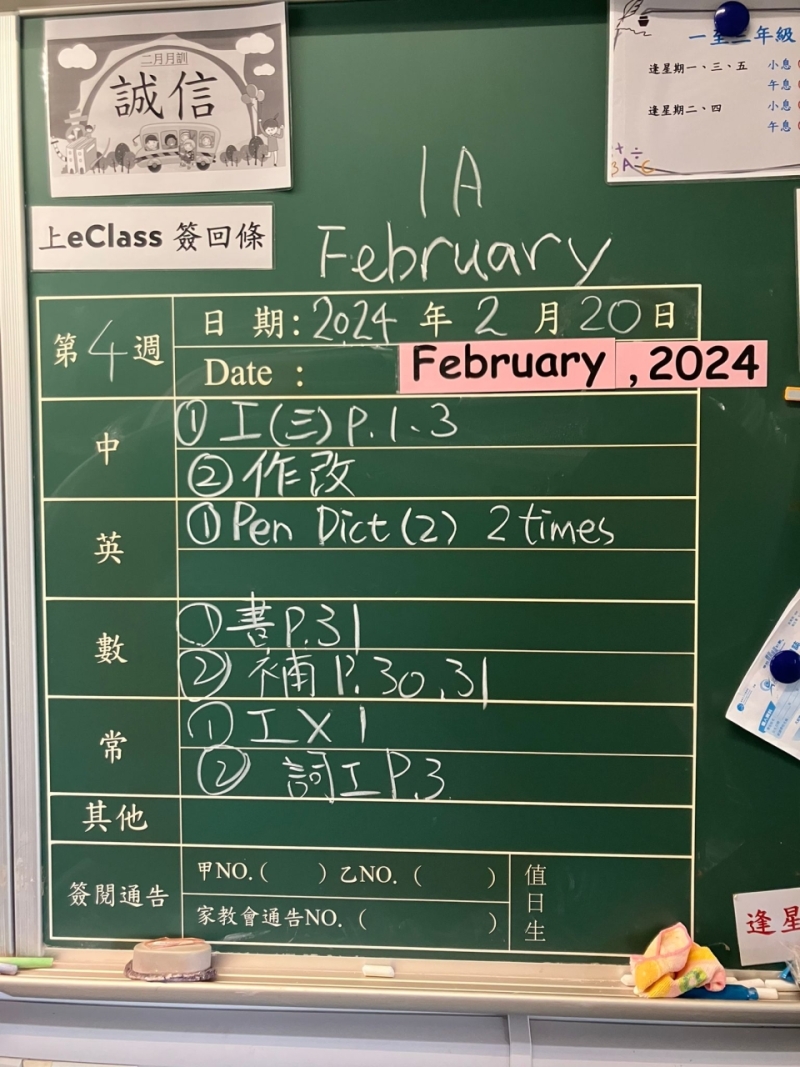 二月月訓
誠信
一至二年級
逢星期一、三、五 小息
午息
逢星期二、四 小息
午息
上eClass 簽回條
1A
February
第4週
日 期:2024 年 2 月 20 日
Date : February , 2024
中
① 工(三) P.1、3
② 作改
英
① Pen Dict (2) 2 times
數
① 書 P.31
② 補 P.30、31
常
① 工 X 1
② 詞工 P.3
其他
簽閱通告
甲NO.( ) 乙NO. ( )
家教會通告NO. ( )
值日生
逢星